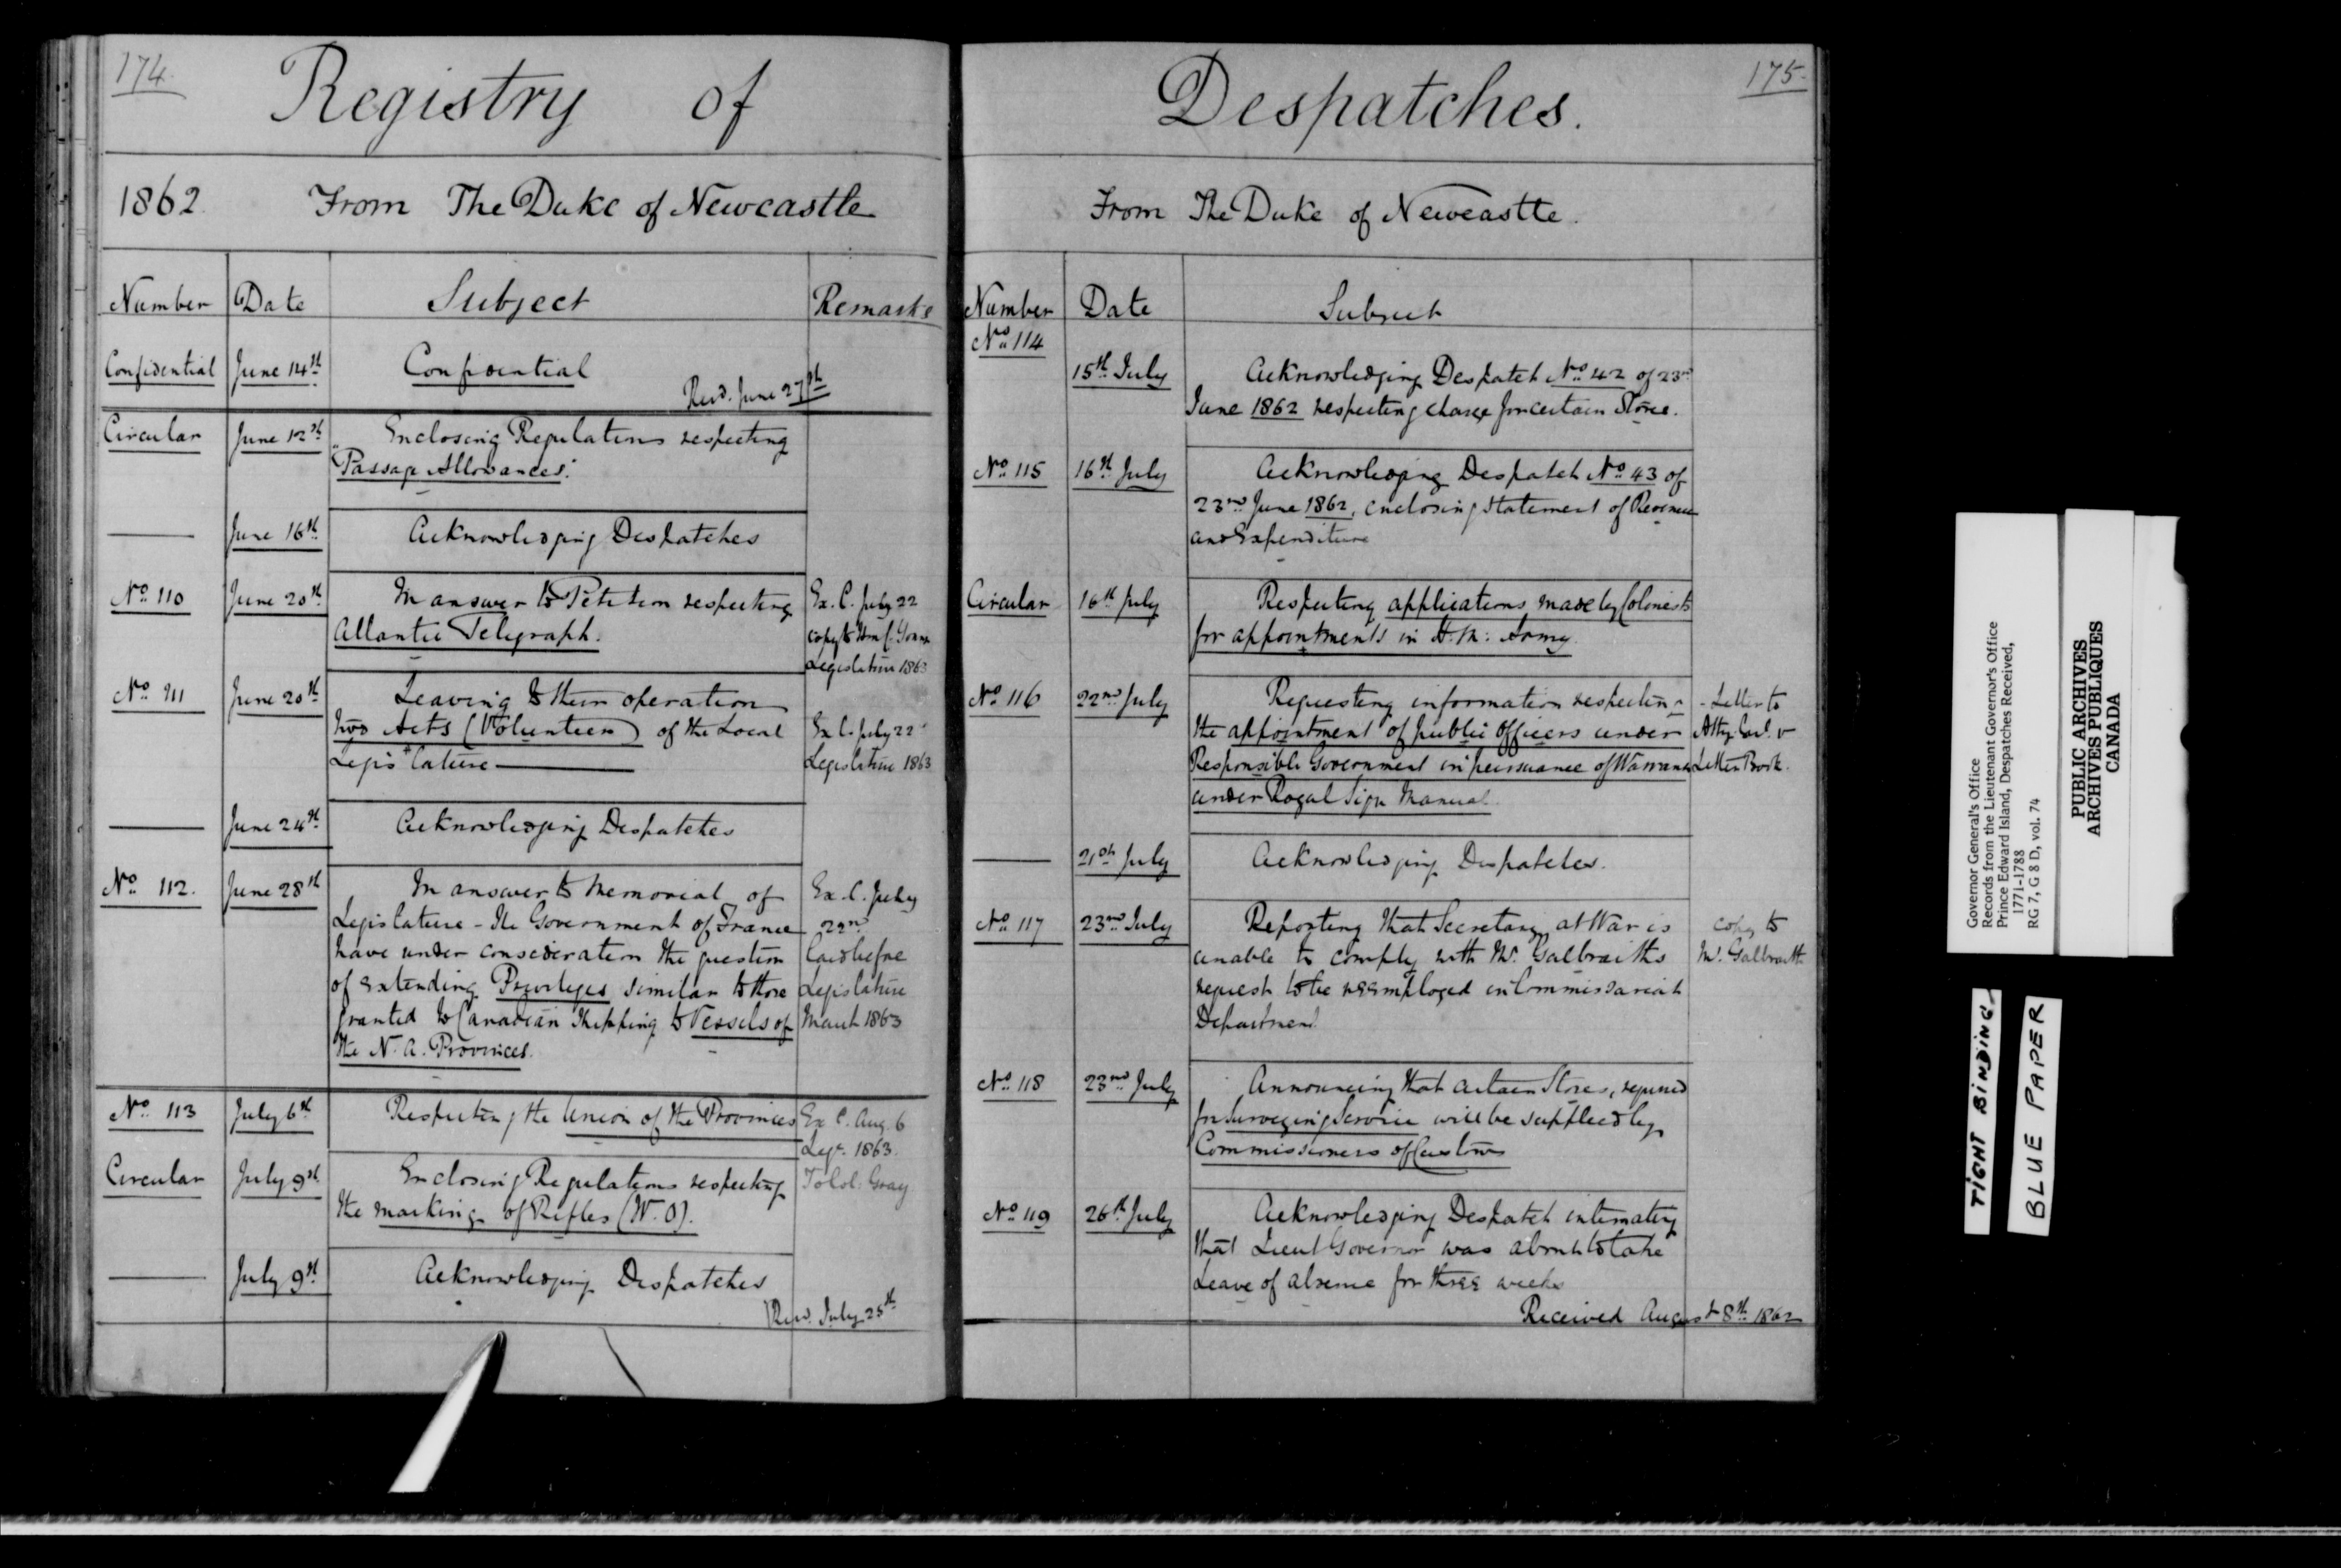 174.
Registry of
1862. From The Duke of Newcastle
Number Date Subject Remarks
Confidential June 14th Confidential
Recd. June 27th
Circular June 12th Enclosing Regulations respecting
"Passage Allowances".
June 16th Acknowledging Despatches
No. 110 June 20th In answer to Petition respecting Ex. C. July 22
Atlantic Telegraph. copy to
Legislature 1863
No. 111 June 20th Leaving to their operation
two Acts (Volunteers) of the Local Ex C. July 22
Legislature Legislature 1863
June 24th Acknowledging Despatches
No. 112. June 28th In answer to Memorial of Ex. C. July
Legislature - The Government of France 22nd
have under consideration the question Laid before
of extending Privileges similar to those Legislature
granted to Canadian Shipping to Vessels of March 1863
the N. A. Provinces.
No. 113 July 6th Respecting the Union of the Provinces Ex C. Aug. 6
Legre. 1863.
Circular July 9th Enclosing Regulations respecting To Col. Gray
the marking of Rifles (W. O).
July 9th Acknowledging Despatches
Recd. July 25th
175.
Despatches.
From The Duke of Newcastle.
Number Date Subject
No. 114
15th July Acknowledging Despatch No. 42 of 23rd
June 1862 respecting charge for certain Stores.
No. 115 16th July Acknowledging Despatch No. 43 of
23rd June 1862, enclosing Statement of Revenue
and Expenditure
Circular 16th July Respecting applications made by Colonists
for appointments in H. M: Army.
No. 116 22nd July Requesting information respecting - Letter to
the appointment of public Officers under Atty. Genl. v
Responsible Government in pursuance of Warrants Letter Book.
under Royal Sign Manual.
21st July Acknowledging Despatches.
No. 117 23rd July Reporting that Secretary at War is copy to
unable to comply with Mr. Galbraiths Mr. Galbraith
request to be reemployed in Commissariat
Department.
No. 118 23rd July Announcing that certain Stores, required
for Surveying Service will be supplied by
Commissioners of Customs
No. 119 26th July Acknowledging Despatch intimating
that Lieut Governor was about to take
Leave of absence for three weeks
Received August 8th 1862
Governor General's Office
Records from the Lieutenant Governor's Office
Prince Edward Island, Despatches Received,
1771-1788
RG 7, G 8 D, vol. 74
PUBLIC ARCHIVES
ARCHIVES PUBLIQUES
CANADA
TIGHT BINDING
BLUE PAPER